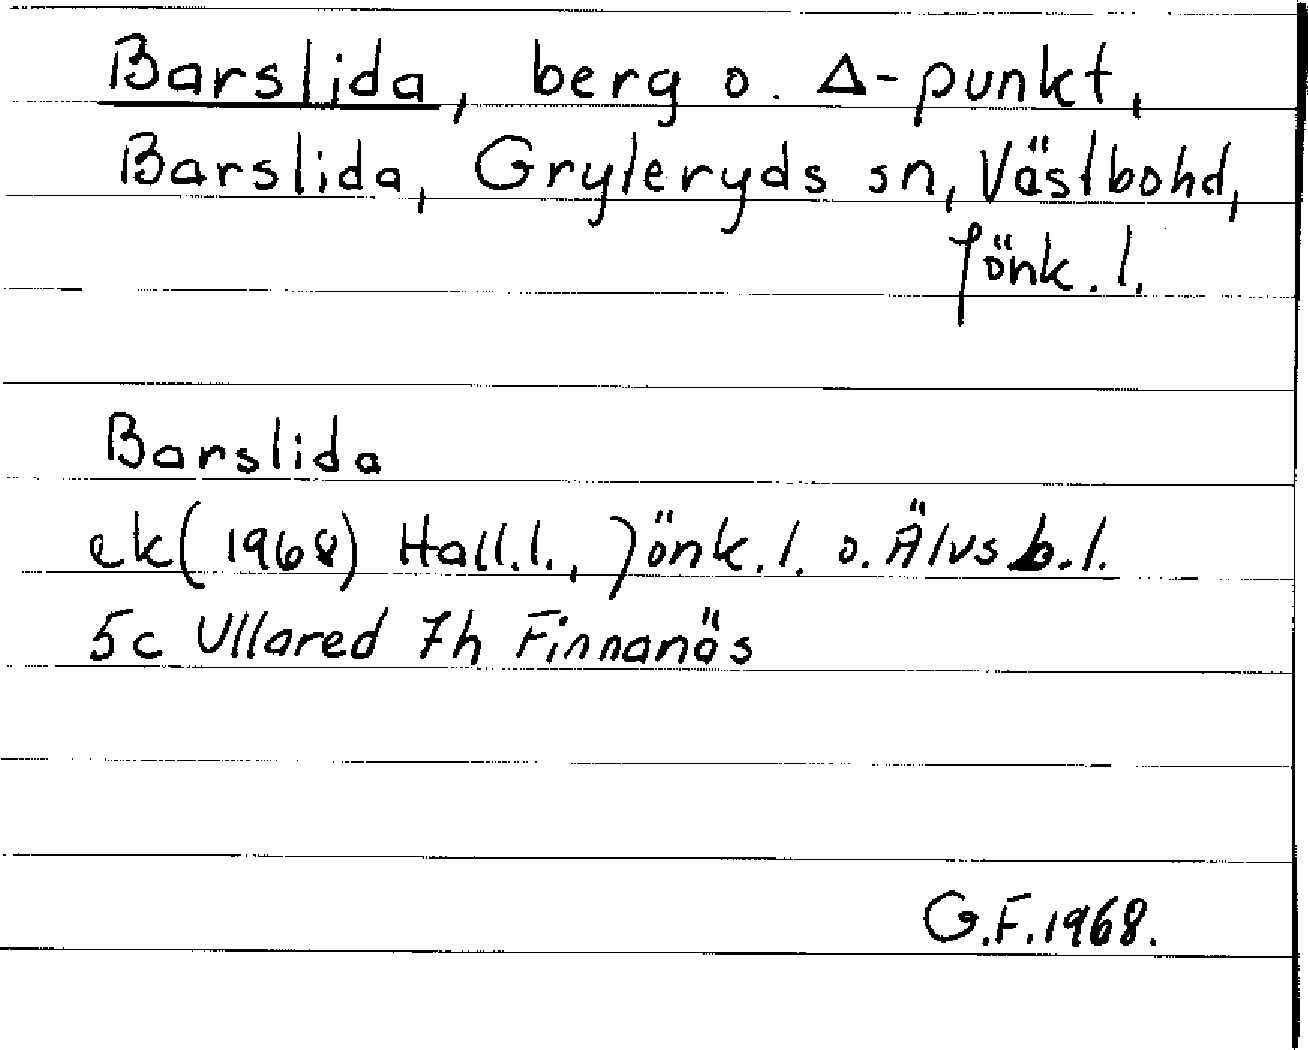 Barslida, berg o. Δ-punkt,
Barslida, Gryteryds sn, Västbohd,
Jönk. l.
Barslida
ek(1968) Hall.l., Jönk.l. o. Älvsb.l.
5c Ullared 7h Finnanäs
G.F.1968.